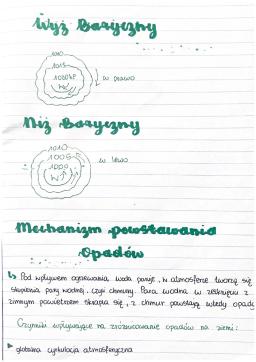 Wyż Baryczny
1010
1015
1020hP
W
w prawo
Niż Baryczny
1010
1005
1000
N
w lewo
Mechanizm powstawania
opadów
↳ Pod wpływem ogrzewania woda paruje, w atmosferze tworzą się
skupienia pary wodnej, czyli chmury. Para wodna w zetknięciu z
zimnym powietrzem skrapla się, z chmur powstają wtedy opady
Czynniki wpływające na zróżnicowanie opadów na ziemi:
▶ globalna cyrkulacja atmosferyczna